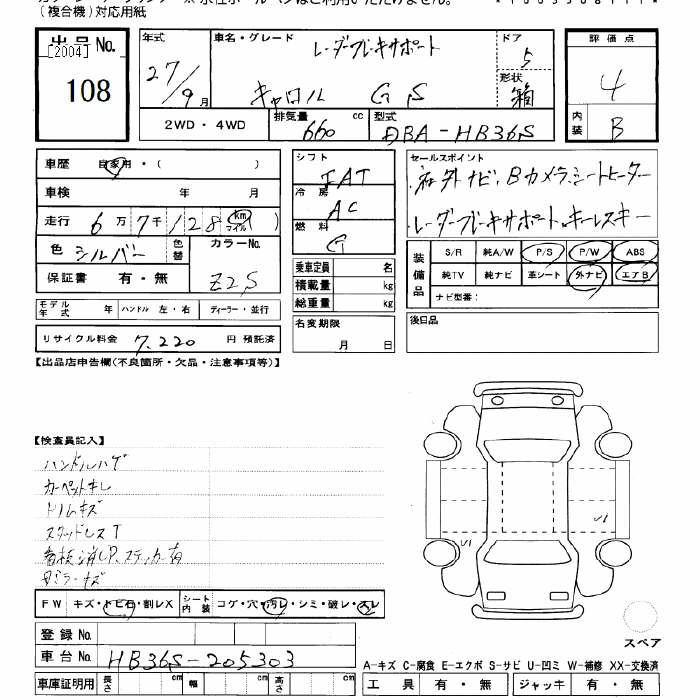 (複合機)対応用紙
出品No. 年式 車名・グレード レーダーブレーキサポート ドア 5 評価点
[2004] 108 27/9月 キャロル GS 形状 箱 4
2WD・4WD 排気量 660 cc 型式 DBA-HB36S 内装 B
車歴 自家用・( ) シフト FAT セールスポイント
車検 年 月 冷房 AC 社外ナビ、Bカメラ、シートヒーター
走行 6万7千128 km マイル ( ) 燃料 G レーダーブレーキサポート、キーレスキー
色 シルバー 色替 カラーNo. Z2S
保証書 有・無
乗車定員 名
積載量 kg
総重量 kg
装備品 S/R 純A/W P/S P/W ABS
純TV 純ナビ 革シート 外ナビ エアB
ナビ型番:
モデル年式 年 ハンドル 左・右 ディーラー・並行
名変期限 月 日
後日品
リサイクル料金 7,220 円 預託済
【出品店申告欄(不良箇所・欠品・注意事項等)】
【検査員記入】
ハンドルハゲ
カーペットキレ
トリムキズ
スタッドレスT
看板消しP、ステッカー有
ミラーキズ
U1 U1
FW キズ・トビ石・割レX シート内装 コゲ・穴・汚レ・シミ・破レ・スレ
登録No.
車台No. HB36S-205303
スペア
車庫証明用 長さ cm 幅 cm 高さ cm
A-キズ C-腐食 E-エクボ S-サビ U-凹ミ W-補修 XX-交換済
工具 有・無 ジャッキ 有・無